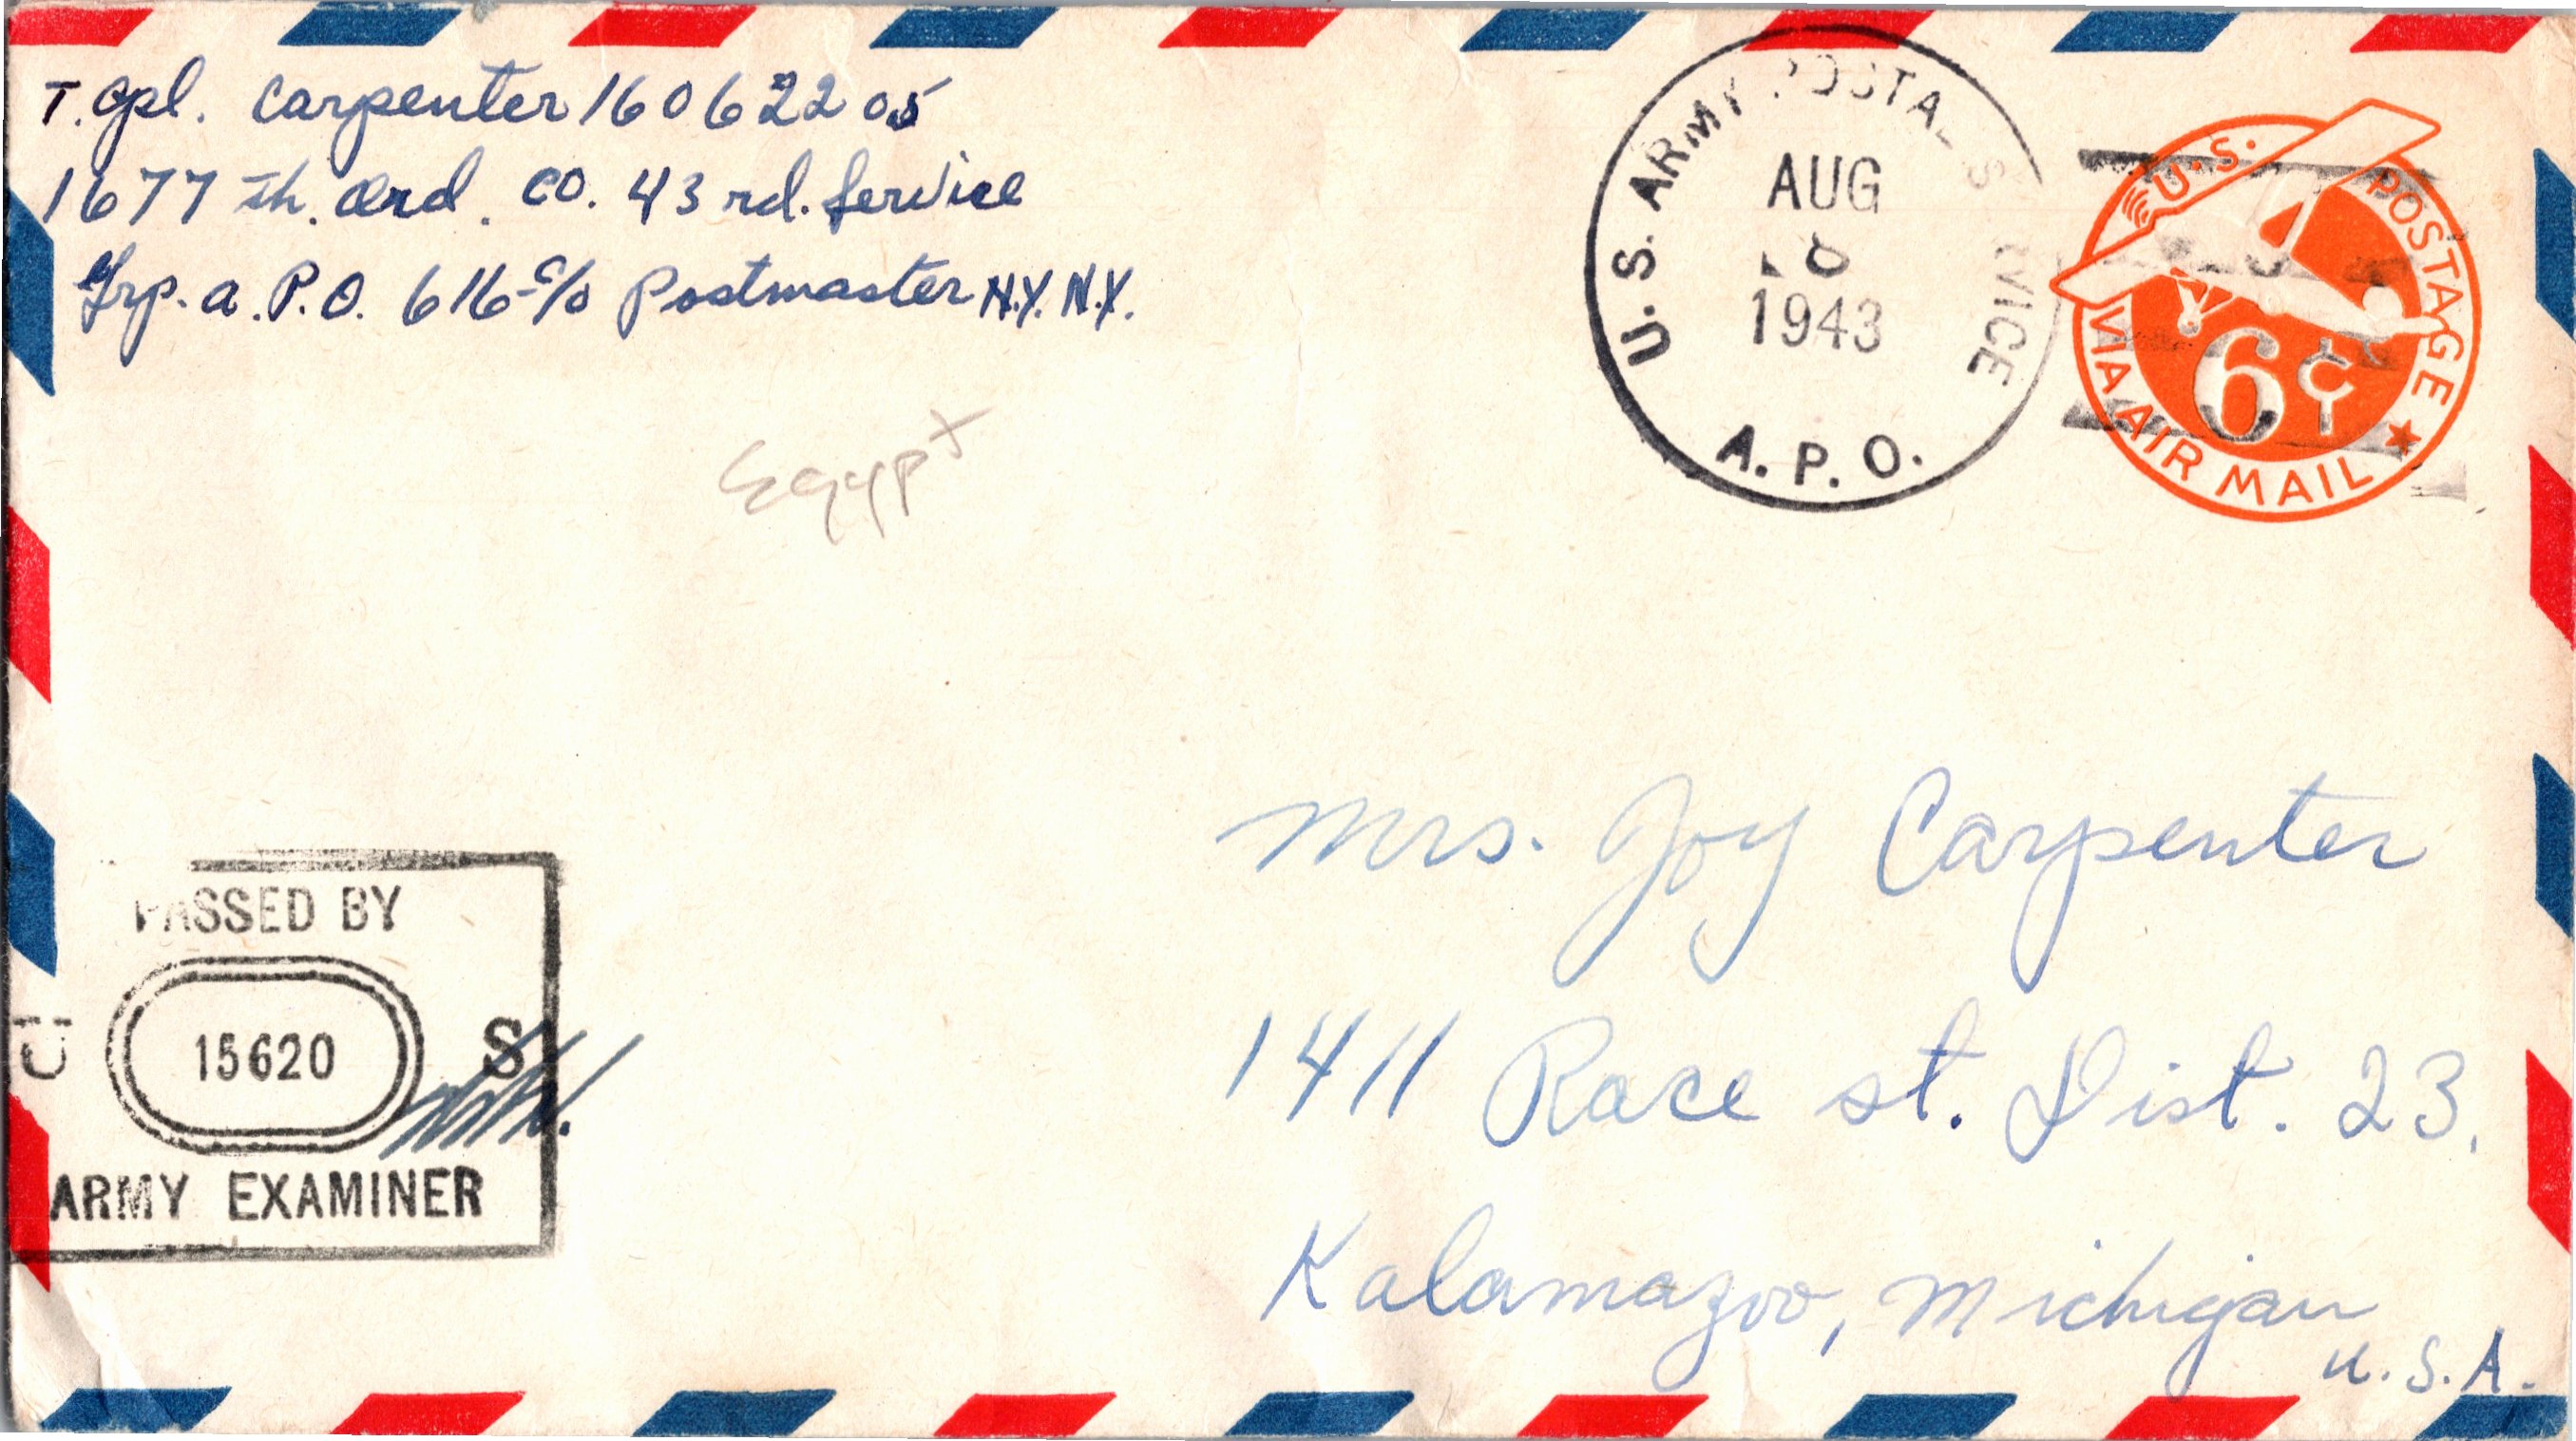 T. Cpl. Carpenter 16062205
1677 th. Ord. Co. 43 rd. Service
Grp. A.P.O. 616 c/o Postmaster N.Y. N.Y.
Egypt
U.S. ARMY POSTAL SERVICE
AUG
1943
A.P.O.
U.S. POSTAGE
6¢
VIA AIR MAIL
PASSED BY
U 15620 S
ARMY EXAMINER
Mrs. Joy Carpenter
1411 Race st. Dist. 23.
Kalamazoo, Michigan
U.S.A.